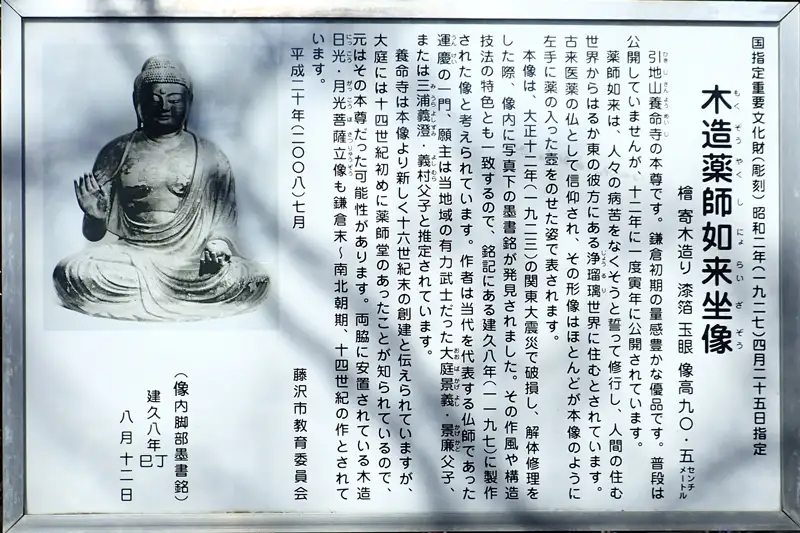 国指定重要文化財(彫刻) 昭和二年(一九二七)四月二十五日指定
木造薬師如来坐像
もくぞうやくしにょらいざぞう
檜 寄木造り 漆箔 玉眼 像高九〇・五センチメートル
引地山養命寺の本尊です。鎌倉初期の量感豊かな優品です。普段は
公開していませんが、十二年に一度寅年に公開されています。
薬師如来は、人々の病苦をなくそうと誓って修行し、人間の住む
世界からはるか東の彼方にある浄瑠璃世界に住むとされています。
古来医薬の仏として信仰され、その形像はほとんどが本像のように
左手に薬の入った壺をのせた姿で表されます。
本像は、大正十二年(一九二三)の関東大震災で破損し、解体修理を
した際、像内に写真下の墨書銘が発見されました。その作風や構造
技法の特色とも一致するので、銘記にある建久八年(一一九七)に製作
された像と考えられています。作者は当代を代表する仏師であった
運慶の一門、願主は当地域の有力武士だった大庭景義・景廉父子、
または三浦義澄・義村父子と推定されています。
養命寺は本像より新しく十六世紀末の創建と伝えられていますが、
大庭には十四世紀初めに薬師堂のあったことが知られているので、
元はその本尊だった可能性があります。両脇に安置されている木造
日光・月光菩薩立像も鎌倉末～南北朝期、十四世紀の作とされて
います。
平成二十年(二〇〇八)七月
藤沢市教育委員会
(像内脚部墨書銘)
建久八年丁巳
八月十二日